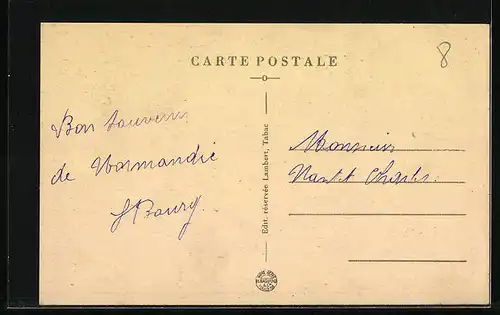 CARTE POSTALE
8
Bon Souvenir
de Normandie
Monsieur
Charles
Edit. réservée Lambert, Tabac